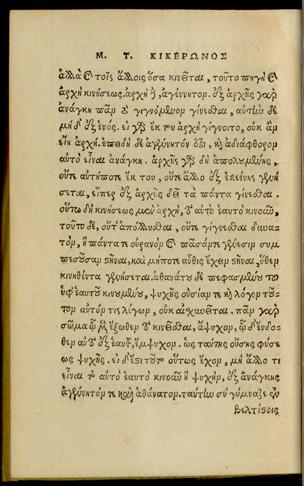 Μ. Τ. ΚΙΚΕΡΩΝΟΣ
ἀλλὰ καὶ τοῖς ἄλλοις ὅσα κινεῖται, τοῦτο πηγὴ καὶ
ἀρχὴ κινήσεως. ἀρχὴ δὲ, ἀγέννητον. ἐξ ἀρχῆς γὰρ
ἀνάγκη πᾶν τὸ γιγνόμενον γίνεσθαι, αὐτὴν δὲ
μὴ δ' ἐξ ἑνός. εἰ γὰρ ἔκ του ἀρχὴ γίγνοιτο, οὐκ ἂν
εἴη ἀρχή. ἐπειδὴ δὲ ἀγέννητόν ἐστι, καὶ ἀδιάφθορον
αὐτὸ εἶναι ἀνάγκη. ἀρχῆς γὰρ δὴ ἀπολομένης,
οὔτε αὐτήποτε ἔκ του, οὔτε ἄλλο ἐξ ἐκείνης γενή
σεται, εἴπερ ἐξ ἀρχῆς δεῖ τὰ πάντα γίνεσθαι.
οὕτω δὴ κινήσεως μὲν ἀρχὴ, τὸ αὐτὸ ἑαυτὸ κινοῦν,
τοῦτο δὲ, οὔτ' ἀπόλλυσθαι, οὔτε γίγνεσθαι δυνα-
τόν, ἢ πάντα τε οὐρανὸν καὶ πᾶσάν τε γένεσιν συμ
πεσοῦσαν στῆναι, καὶ μήποτε αὖθις ἔχειν στῆναι, ὅθεν
κινηθέντα γενήσεται. ἀθανάτου δὲ πεφασμένου τοῦ
ὑφ' ἑαυτοῦ κινουμένου, ψυχῆς οὐσίαν τε καὶ λόγον τοῦ-
τον αὐτόν τις λέγων, οὐκ αἰσχυνεῖται. πᾶν γὰρ
σῶμα ᾧ μὲν ἔξωθεν τὸ κινεῖσθαι, ἄψυχον, ᾧ δ' ἔνδο-
θεν αὐτῷ ἐξ ἑαυτοῦ, ἔμψυχον. ὡς ταύτης οὔσης φύσε
ως ψυχῆς. εἰ δ' ἔστι τοῦτο οὕτως ἔχον, μὴ ἄλλο τι
εἶναι τὸ αὐτὸ ἑαυτὸ κινοῦν ἢ ψυχὴν, ἐξ ἀνάγκης
ἀγέννητόν τε καὶ ἀθάνατον. ταύτην σὺ γύμναζε ἐν
βελτίστοις